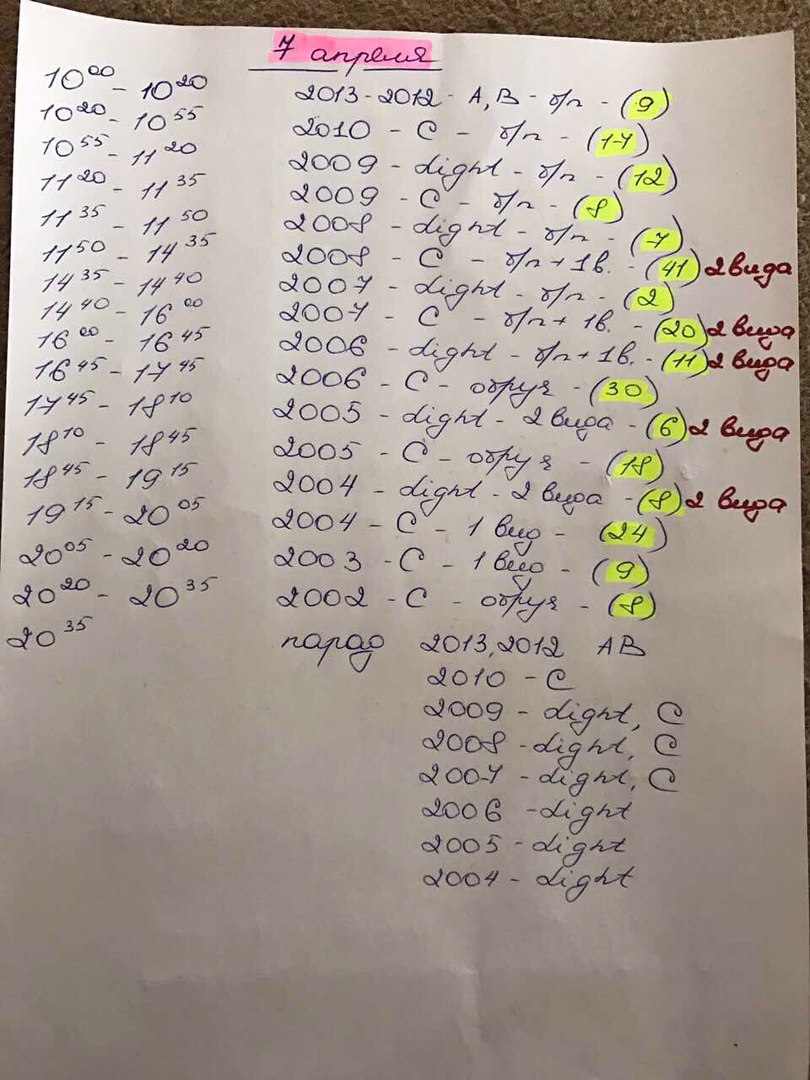 7 апреля
10⁰⁰ - 10²⁰ 2013-2012 - А, В - б/п - (9)
10²⁰ - 10⁵⁵ 2010 - С - б/п - (17)
10⁵⁵ - 11²⁰ 2009 - light - б/п - (12)
11²⁰ - 11³⁵ 2009 - С - б/п - (8)
11³⁵ - 11⁵⁰ 2008 - light - б/п - (7)
11⁵⁰ - 14³⁵ 2008 - С - б/п + 1в. - (41) 2 вида
14³⁵ - 14⁴⁰ 2007 - light - б/п - (2)
14⁴⁰ - 16⁰⁰ 2007 - С - б/п + 1в. - (20) 2 вида
16⁰⁰ - 16⁴⁵ 2006 - light - б/п + 1в. - (11) 2 вида
16⁴⁵ - 17⁴⁵ 2006 - С - обруч - (30)
17⁴⁵ - 18¹⁰ 2005 - light - 2 вида - (6) 2 вида
18¹⁰ - 18⁴⁵ 2005 - С - обруч - (18)
18⁴⁵ - 19¹⁵ 2004 - light - 2 вида - (8) 2 вида
19¹⁵ - 20⁰⁵ 2004 - С - 1 вид - (24)
20⁰⁵ - 20²⁰ 2003 - С - 1 вид - (9)
20²⁰ - 20³⁵ 2002 - С - обруч - (8)
20³⁵ парад 2013, 2012 АВ
2010 - С
2009 - light, С
2008 - light, С
2007 - light, С
2006 - light
2005 - light
2004 - light